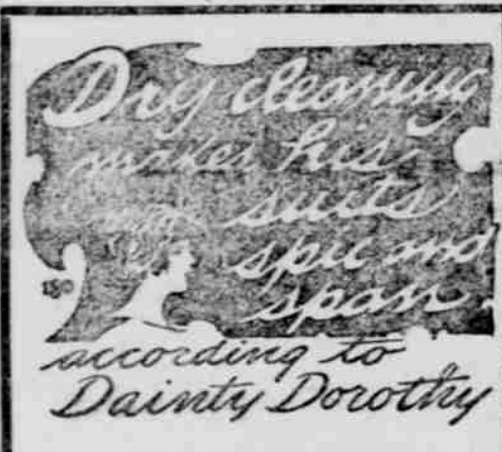 Dry cleaning
makes his
suits
spic and
150
span
according to
Dainty Dorothy